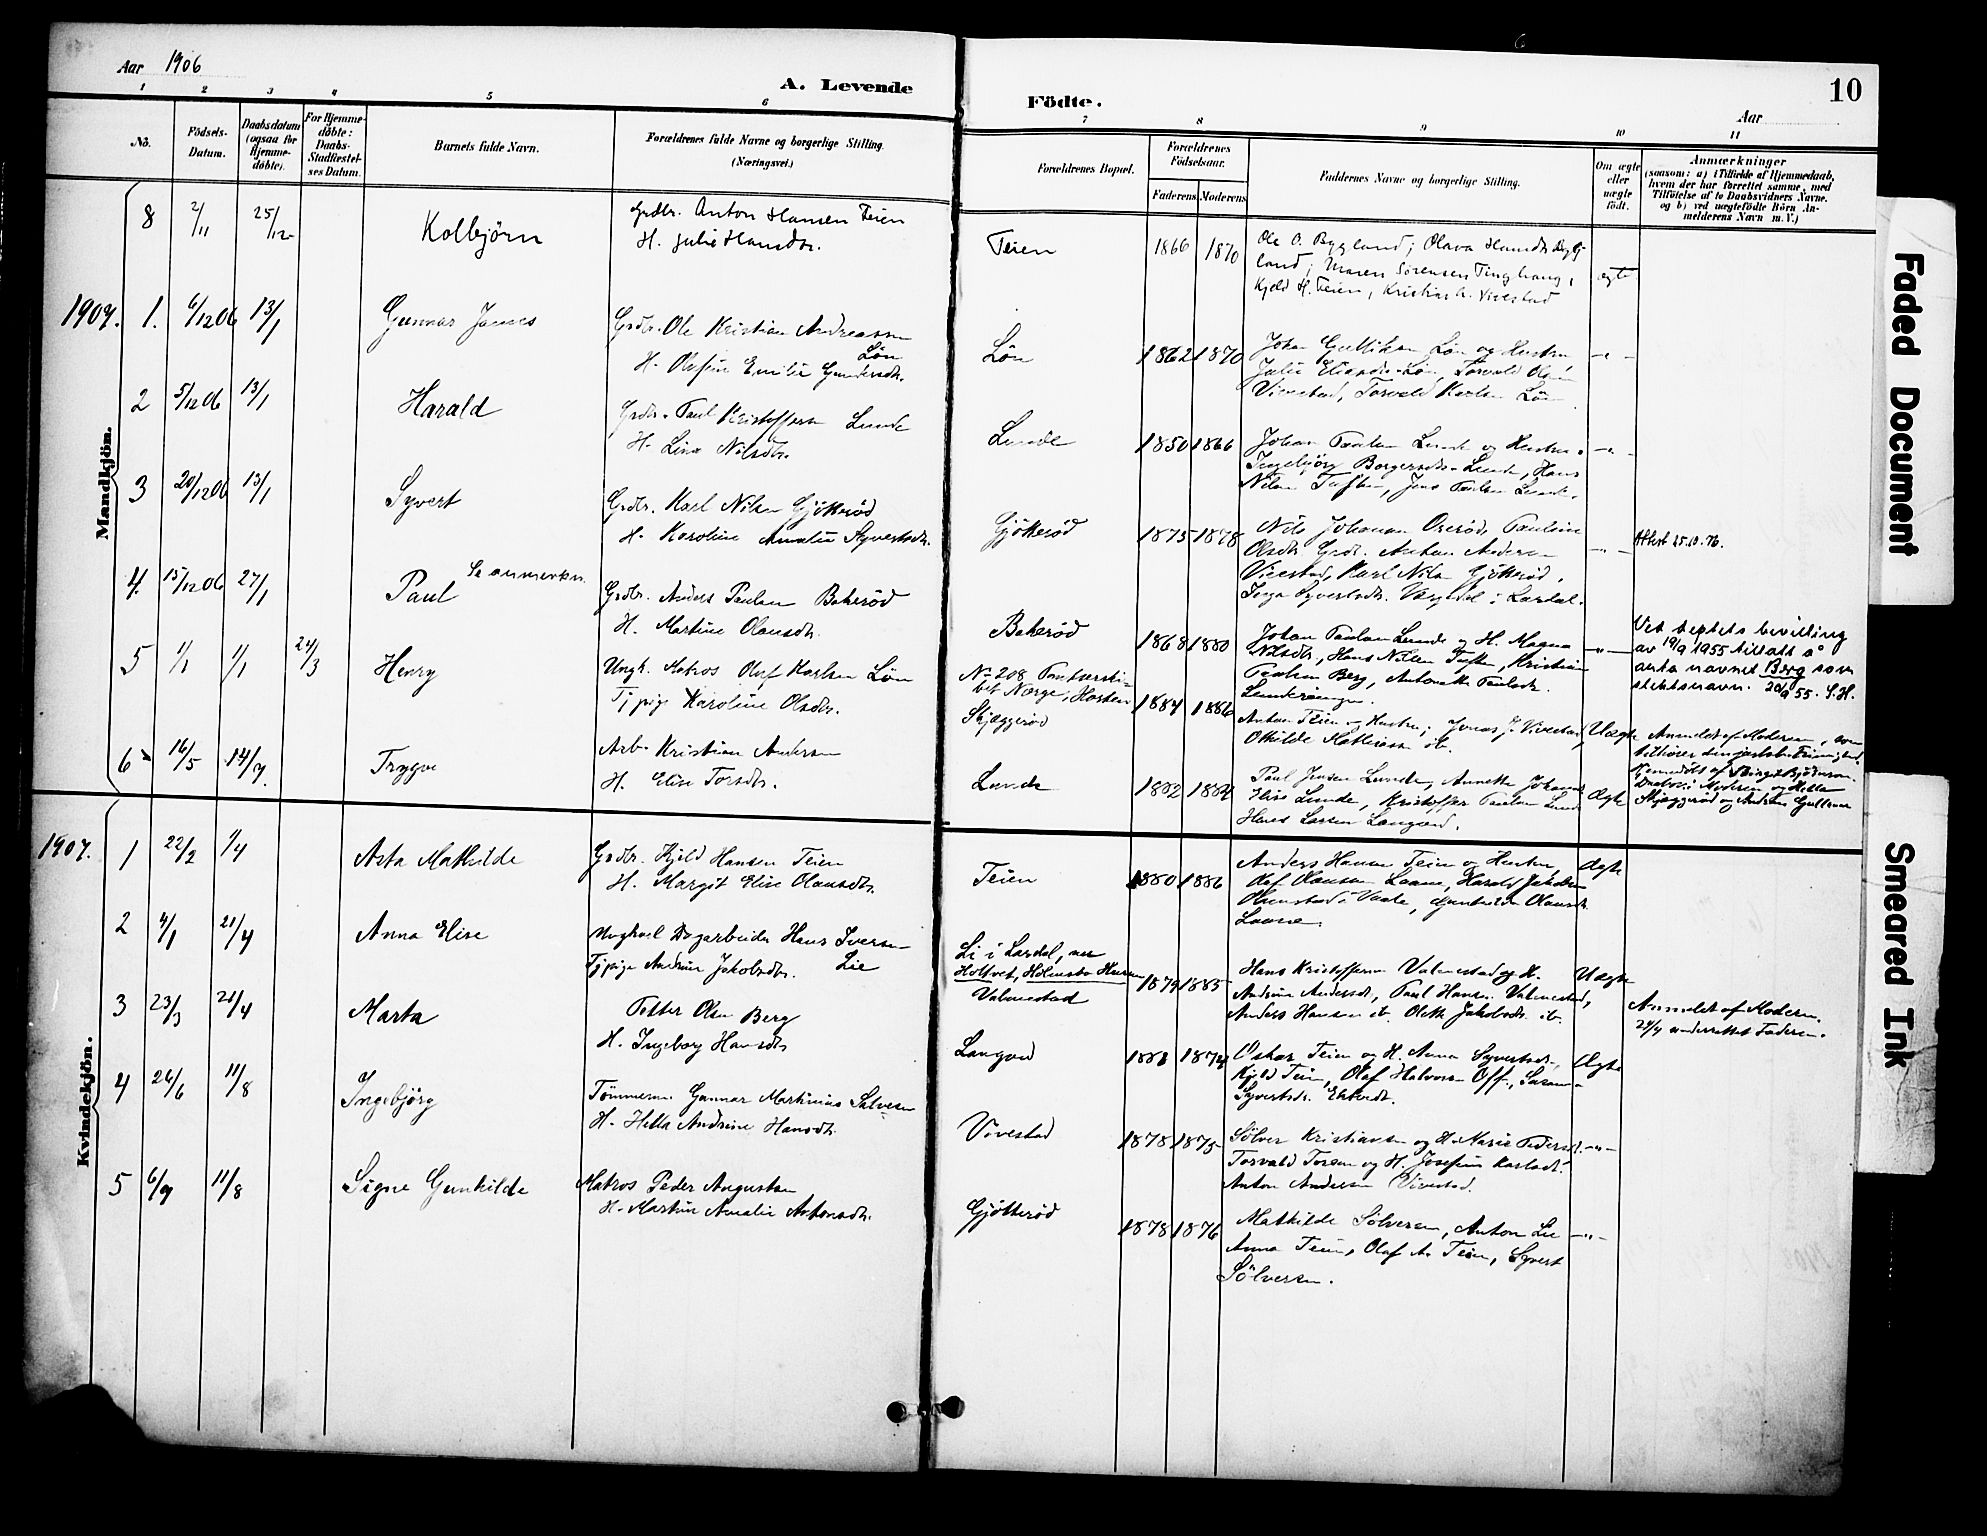 Aar 1906
A. Levende
Födte.
Aar
10
1 2 3 4 5 6 7 8 9 10 11
No.
Födsels-
Datum.
Daabsdatum
(ogsaa for
Hjemme-
döbte).
For Hjemme-
döbte:
Daabs-
Stadfæstel-
ses Datum.
Barnets fulde Navn.
Forældrenes fulde Navne og borgerlige Stilling.
(Næringsvei.)
Forældrenes Bopæl.
Forældrenes
Födselsaar.
Faderens Moderens
Faddernes Navne og borgerlige Stilling.
Om ægte
eller
uægte
födt.
Anmærkninger
(saasom: a) i Tilfælde af Hjemmedaab,
hvem der har forrettet samme, med
Tilföielse af to Daabsvidners Navne.
og b) ved uægtefödte Börn An-
melderens Navn m. V.)
Mandkjön.
8 2/11 25/12 Kolbjörn
Grdbr. Anton Hansen Teien
H. Julie Hansdtr.
Teien 1866 1870
Ole O. Bygland; Olava Hansdtr Byg-
land; Maren Sörensen Tinghaug,
Kjeld H. Teien, Kristian A. Vivestad
ægte
1907. 1. 6/12 06 13/1 Gunnar James
Grdbr. Ole Kristian Andreassen
Løn
H. Olefine Emilie Gundersdtr.
Løn 1862 1870
Johan Gulliksen Løn og Hustru
Julie Eliasdtr. Løn, Torvald Olsen
Vivestad, Torvald Karlsen Løn
-"-
2 5/12 06 13/1 Harald
Grdbr. Paul Kristoffersen Lunde
H. Lina Nilsdtr.
Lunde 1850 1866
Johan Paulsen Lunde og Hustru
Ingebjörg Borgersdtr. Lunde, Hans
Nilsen Tuften, Jens Paulsen Lunde.
-"-
3 20/12 06 13/1 Syvert
Grdbr. Karl Nilsen Gjötteröd
H. Karoline Amalie Syvertsdtr.
Gjötteröd 1875 1878
Nils Johansen Oseröd, Pauline
Olsdtr. Grdbr. Anton Andersen
Vivestad, Karl Nilsen Gjötteröd,
Inga Syvertsdtr. i Lardal.
-"-
Attest 25.10.76.
4. 15/12 06 27/1 Paul
Se anmerkn.
Grdbr. Anders Paulsen Bakeröd
H. Martine Olausdtr.
Bakeröd 1868 1880
Johan Paulsen Lunde og H. Magna
Nilsdtr., Hans Nilsen Tuften, Kristian
Paulsen Berg, Antonette Paulsdtr.
-"-
Ved septets bevilling
av 19/9 1955 tillatt å
anta navnet Berg som
slektsnavn. 20/9 55. S.H.
5 1/1 1/1 24/3 Henry
Ungk. Matros Oluf Karlsen Løn
Tj.pige Karoline Olsdtr.
No 208
Norge, Horten
Skjæggeröd
1884 1886
Anton Teien og Hustru; Jonas Vivestad,
Otilde
Uægte
Anmeldt af Moderen, som
tilhörer
Hjemmedöbt af
Moderen og
Skjæggeröd og Anders Gulliksen
6 16/5 14/7. Trygve
Arb. Kristian Andersen
H. Elise Torsdtr.
Lunde 1882 1884
Paul Jensen Lunde, Annette
Elise Lunde, Kristoffer Paulsen Lunde
Hans Larsen Langved.
Ægte
Kvindekjön.
1907. 1 22/2 1/4 Asta Mathilde
Grdbr. Kjeld Hansen Teien
H. Margit Elise Olausdtr.
Teien 1880 1886
Anders Hansen Teien og Hustru
Olaf Olausen Laane, Harald Jakobsen
i Vaale, Gunhilda Olausdtr.
Laane
Ægte
2 4/1 21/4 Anna Elise
Ungkarl Dagarbeider Hans Iversen
Lie
Tj.pige Andrine Jakobsdtr.
Li i Lardal, nu
Holtvet, Holmsbo Hurum
Valmestad
1879 1885
Hans Kristoffersen Valmestad og H.
Andrine Andersdtr., Paul Hansen Valmestad,
Anders Hansen st. Olette Jakobsdtr. st.
Uægte
Anmeldt af Moderen.
24/4 underrettet Faderen.
3 23/3 21/4 Marta
Petter Olsen Berg
H. Ingeborg Hansdtr.
Langved 1881 1874
Oskar Teien og H. Anna Syvertsdtr.
Kjeld Teien, Olaf Halvorsen Off,
Syvertsdtr.
Ægte
4 26/6 11/8 Ingebjörg
Tömmerm. Gunnar Martinius Salvesen
H. Hella Andrine Hansdtr.
Vivestad 1878 1875
Sölver Kristiansen og H. Marie Pedersdtr.
Torvald Torsen og H. Josefine Karlsdtr.
Anton Andersen Vivestad.
-"-
5 6/7 11/8 Signe Gunhilde
Matros Peder Augustsen
H. Martine Amalie Antonsdtr.
Gjötteröd 1878 1876
Mathilde Sölversen, Anton Lie
Anna Teien, Olaf A. Teien, Syvert
Sölversen.
-"-
Faded Document
Smeared Ink